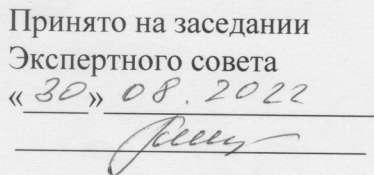 Принято на заседании
Экспертного совета
«30» 08.2022